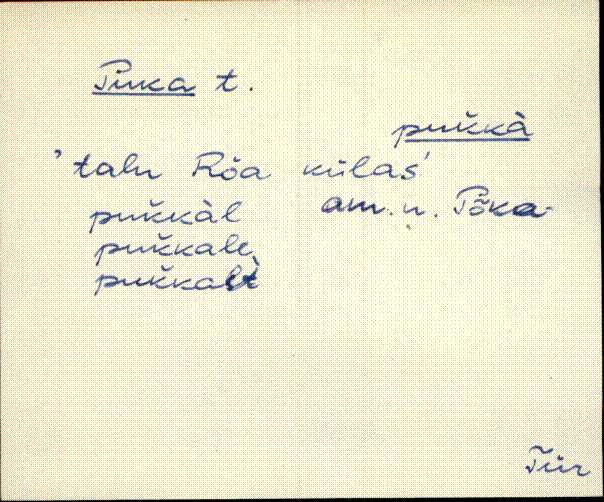 Puka t.
puk̆kà
'talu Rõa külas'
puk̆kàl am. n. Põka
puk̆kale
puk̆kalt̀
Tür